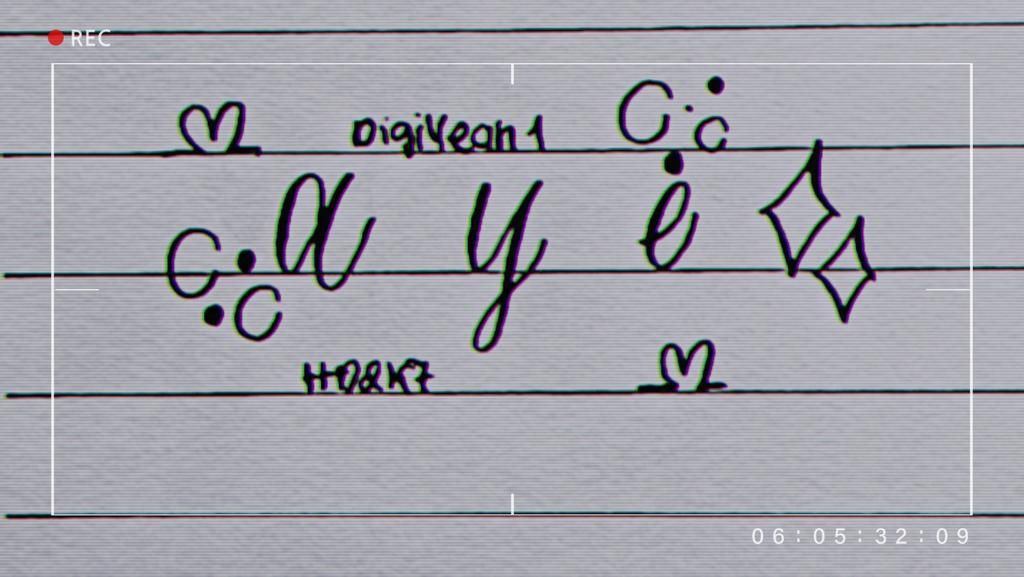 REC
DigiYean1
a y ė
HD2K7
06:05:32:09